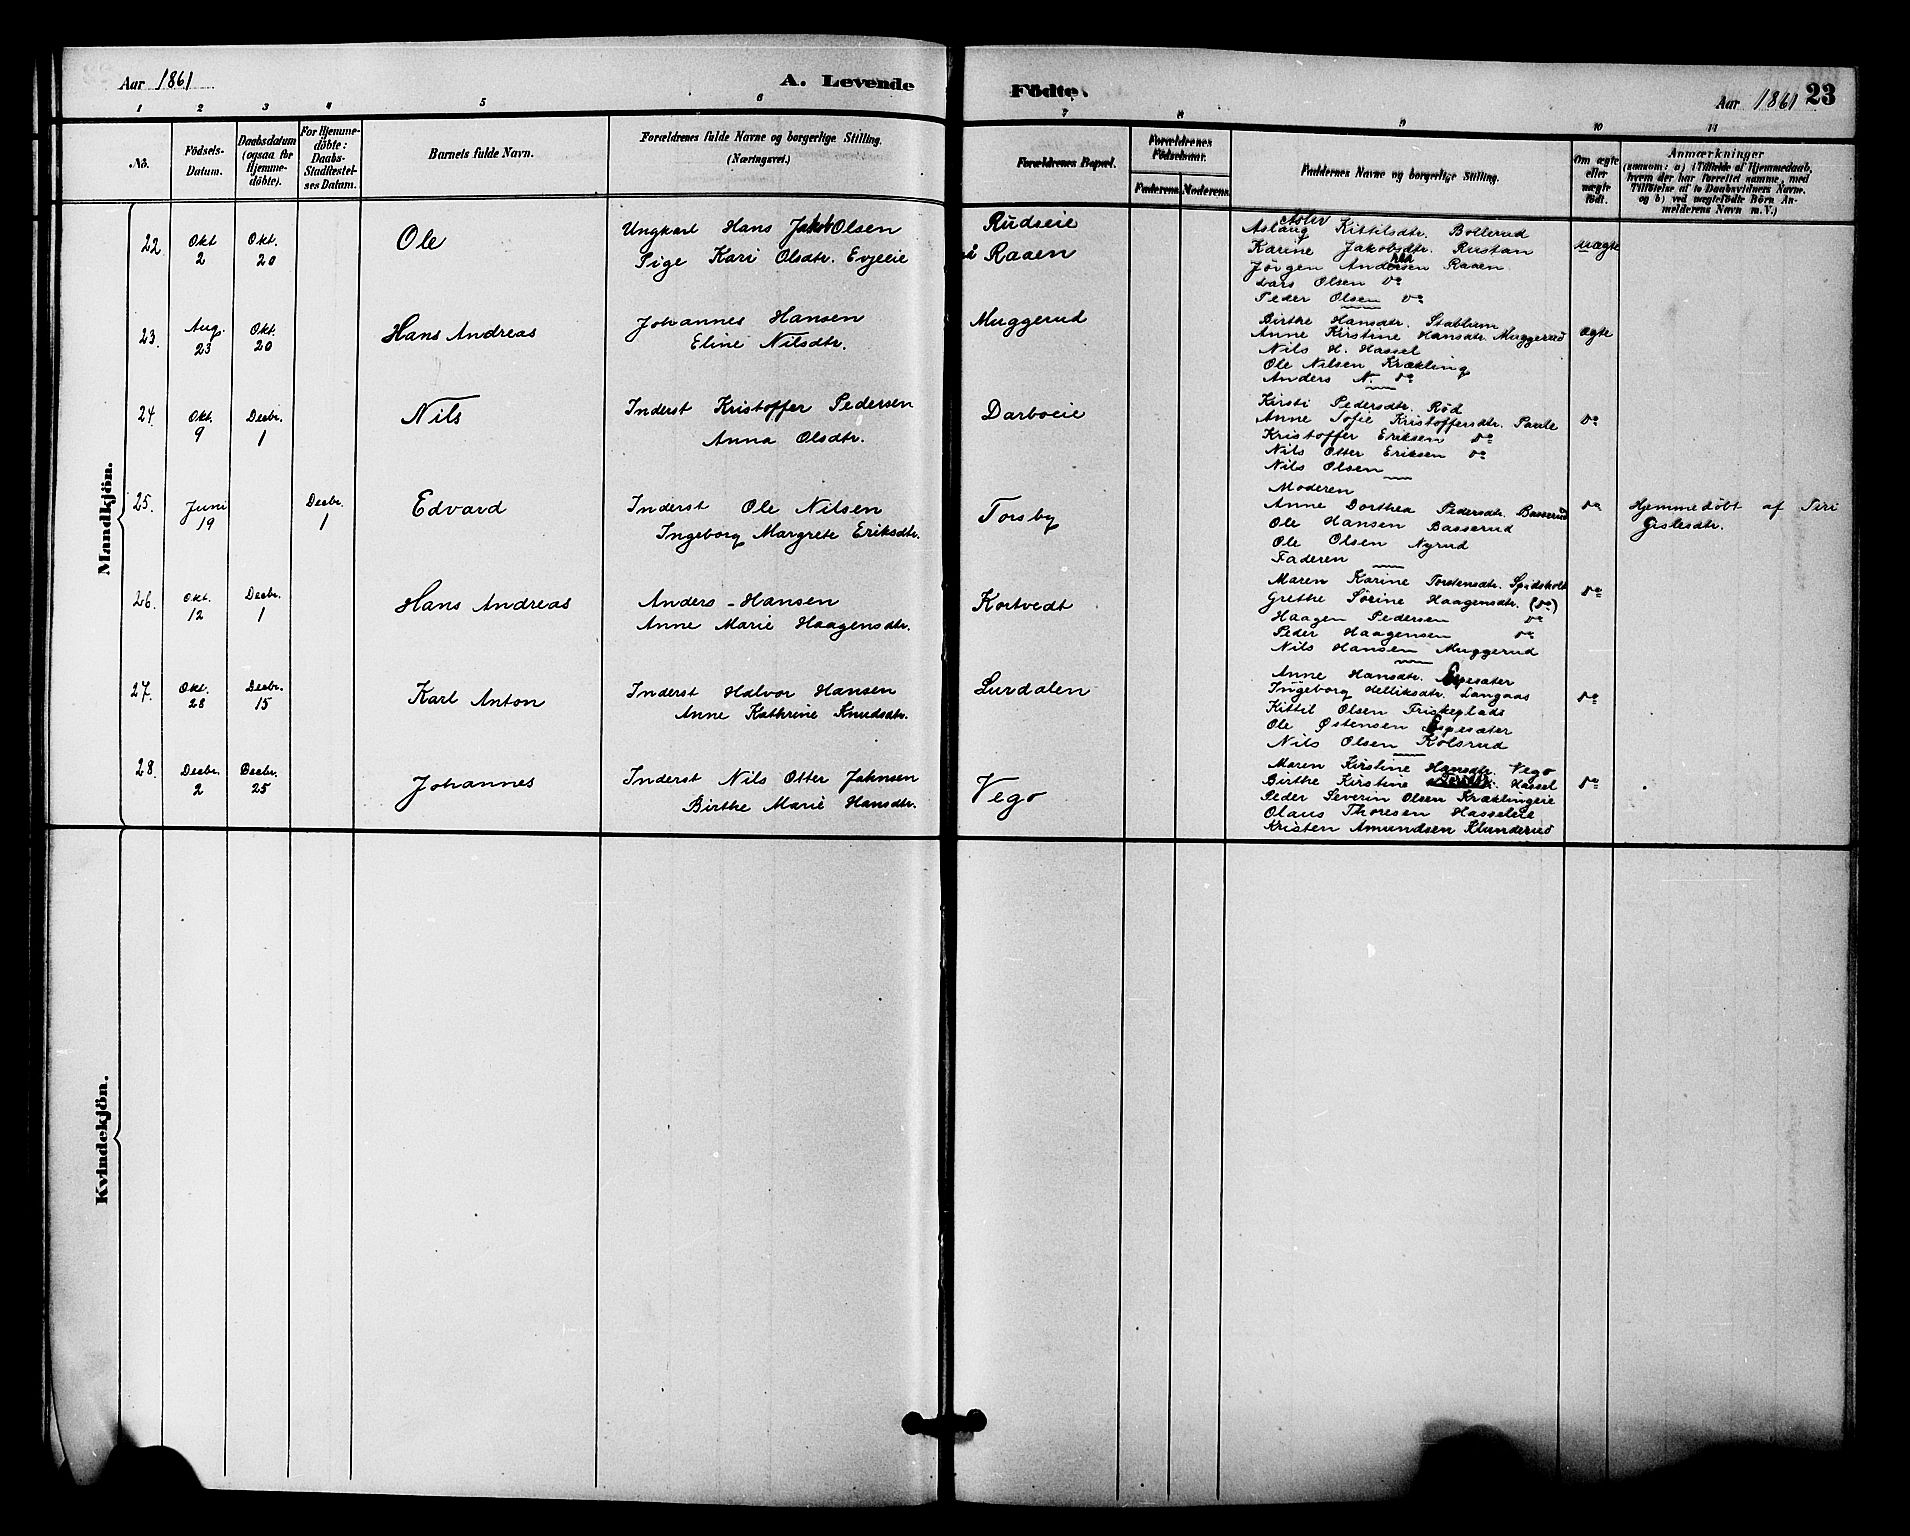 Aar 1861 A. Levende Födte. Aar 1861 23
1 2 3 4 5 6 7 8 9 10 11
No. Födsels-Datum. Daabsdatum (ogsaa for Hjemme-döbte). For Hjemme-döbte: Daabs-Stadfestel-ses Datum. Barnets fulde Navn. Forældrenes fulde Navne og borgerlige Stilling. (Næringsvei.) Forældrenes Bopæl. Forældrenes Födselsaar. Faderens. Moderens. Faddernes Navne og borgerlige Stilling. Om ægte eller uægte födt. Anmærkninger (saasom: a) i Tilfælde af Hjemmedaab, hvem der har forrettet samme, med Tilföielse af to Daabsvidners Navne, og b) ved uægtefödte Börn An-melderens Navn m. V.)
Mandkjön.
22. Okt 2 Okt. 20 Ole Ungkarl Hans Jakob Olsen Rudseie
Pige Kari Olsdtr. Evjeeie på Raaen
Aslaug Aslev Kittilsdtr. Bollerud uægte
Karine Jakobsdtr. Rustan
Jörgen Andersen Raaen
Lars Olsen do
Peder Olsen do
23. Aug. 23 Okt. 20 Hans Andreas Johannes Hansen Muggerud
Eline Nilsdtr.
Birthe Hansdtr. Stablum
Anne Kirstine Hansdtr. Muggerud ægte
Nils H. Hassel
Ole Nilsen Krækling
Anders N. do
24. Okt. 9 Decbr. 1 Nils Inderst Kristoffer Pedersen Darboeie
Anna Olsdtr.
Kirsti Pedersdtr. Rød
Anne Sofie Kristoffersdtr. Paule do
Kristoffer Eriksen do
Nils Otter Eriksen do
Nils Olsen
25. Juni 19 Decbr. 1 Edvard Inderst Ole Nilsen Torsby
Ingeborg Margrete Eriksdtr.
Moderen
Anne Dorthea Pedersdtr. Basserud do Hjemmedöbt af Siri
Ole Hansen Basserud Gislesdtr.
Ole Olsen Nyrud
Faderen
26. Okt. 12 Decbr. 1 Hans Andreas Anders Hansen Kortvedt
Anne Marie Haagensdtr.
Maren Karine Torstensdtr. Spidsholt do
Grethe Sørine Haagensdtr. (do)
Haagen Pedersen do
Peder Haagensen do
Nils Hansen Muggerud
27. Okt. 28 Decbr. 15 Karl Anton Inderst Halvor Hansen Lurdalen
Anne Kathrine Knudsdtr.
Anne Hansdtr. Espesæter
Ingeborg Helliksdtr. Langaas do
Kittil Olsen Friskeplads
Ole Østensen Espesæter
Nils Olsen Kolsrud
28. Decbr. 2 Decbr. 25 Johannes Inderst Nils Otter Jahnsen Vego
Birthe Marie Hansdtr.
Maren Kirstine Hansdtr. Vego
Birthe Kirstine Hassel do
Peder Severin Olsen Kræklingeie
Olaus Thoresen Hasseleie
Kristen Amundsen Klunderud
Kvindekjön.